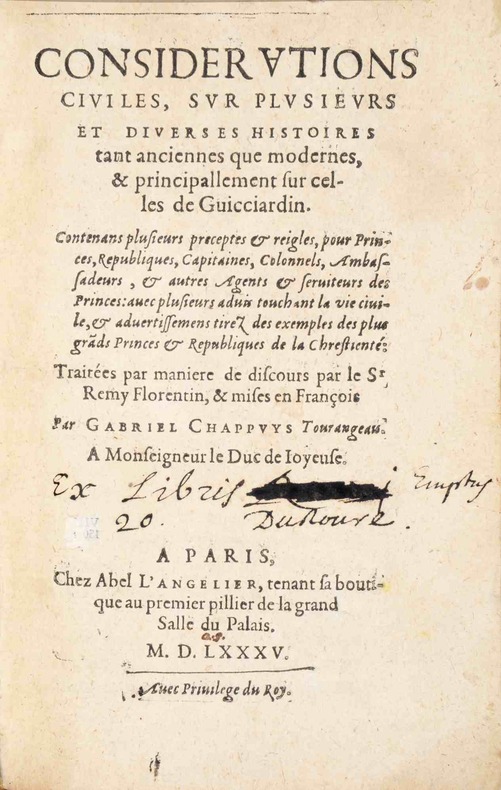 CONSIDERVTIONS
CIVILES, SVR PLVSIEVRS
ET DIVERSES HISTOIRES
tant anciennes que modernes,
& principallement ſur cel-
les de Guicciardin.
Contenans pluſieurs preceptes & reigles, pour Prin-
ces, Republiques, Capitaines, Colonnels, Ambaſ-
ſadeurs, & autres Agents & ſeruiteurs des
Princes: auec pluſieurs aduis touchant la vie ciui-
le, & aduertiſſemens tirez des exemples des plus
grāds Princes & Republiques de la Chreſtienté.
Traitées par maniere de diſcours par le Sr,
Remy Florentin, & miſes en François
Par GABRIEL CHAPPVYS Tourangeau.
A Monſeigneur le Duc de Ioyeuſe.
Ex Libris Emptus
20. Dufloure.
A PARIS,
Chez Abel L'ANGELIER, tenant ſa bouti-
que au premier pillier de la grand
Salle du Palais.
M. D. LXXXV.
Auec Priuilege du Roy.